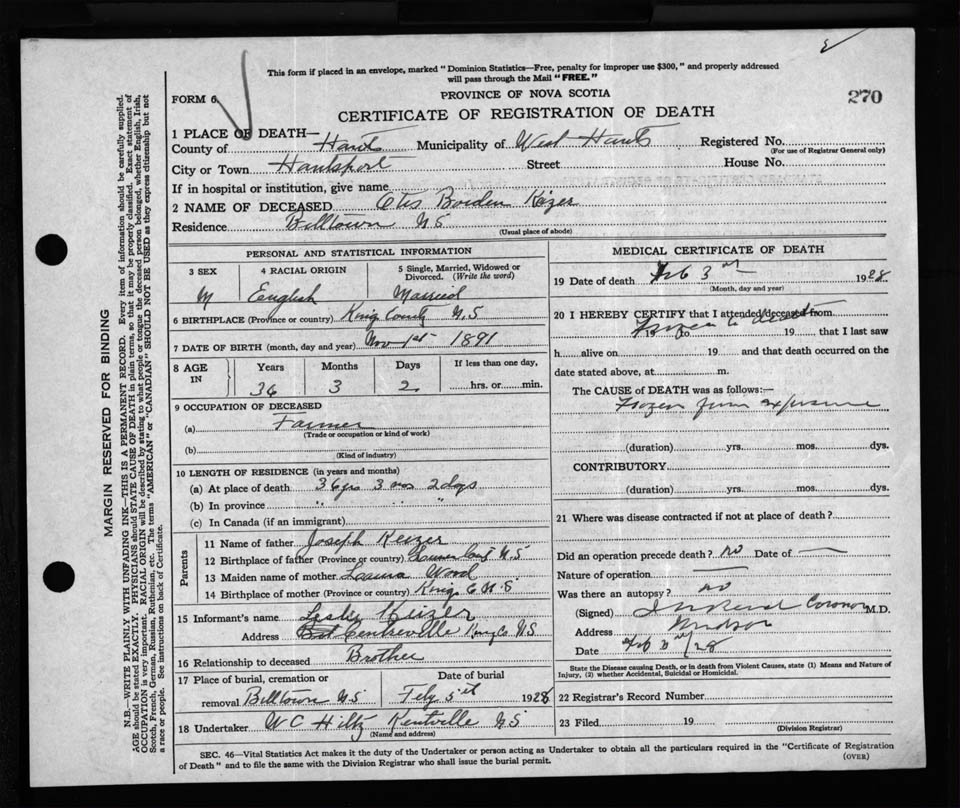 This form if placed in an envelope, marked "Dominion Statistics—Free, penalty for improper use $300," and properly addressed
will pass through the Mail "FREE."
FORM 6
PROVINCE OF NOVA SCOTIA
270
CERTIFICATE OF REGISTRATION OF DEATH
1 PLACE OF DEATH—
County of Hants Municipality of West Hants Registered No.
(For use of Registrar General only)
City or Town Hantsport Street House No.
If in hospital or institution, give name
2 NAME OF DECEASED Otis Borden Keizer
Residence Billtown N S
(Usual place of abode)
PERSONAL AND STATISTICAL INFORMATION
3 SEX
4 RACIAL ORIGIN
5 Single, Married, Widowed or
Divorced. (Write the word)
M English Married
6 BIRTHPLACE (Province or country) Kings County N.S
7 DATE OF BIRTH (month, day and year) Nov 1st 1891
8 AGE
IN
Years Months Days If less than one day,
36 3 2 hrs. or min.
9 OCCUPATION OF DECEASED
(a) Farmer
(Trade or occupation or kind of work)
(b)
(Kind of industry)
10 LENGTH OF RESIDENCE (in years and months)
(a) At place of death 36 yrs 3 mos 2 dys
(b) In province " " "
(c) In Canada (if an immigrant)
Parents
11 Name of father Joseph Keizer
12 Birthplace of father (Province or country) N S
13 Maiden name of mother Wood
14 Birthplace of mother (Province or country) Kings Co N.S
15 Informant's name Leslie Keizer
Address Centreville Kings Co NS
16 Relationship to deceased Brother
17 Place of burial, cremation or Date of burial
removal Billtown NS Feby 5th 1928
18 Undertaker W C Hiltz Kentville N S
(Name and address)
MEDICAL CERTIFICATE OF DEATH
19 Date of death Feb 3rd 1928
(Month, day and year)
20 I HEREBY CERTIFY that I attended deceased from
Frozen to death
19 to 19 that I last saw
h alive on 19 and that death occurred on the
date stated above, at m.
The CAUSE of DEATH was as follows:—
Frozen from exposure
(duration) yrs. mos. dys.
CONTRIBUTORY
(duration) yrs. mos. dys.
21 Where was disease contracted if not at place of death?
Did an operation precede death? no Date of —
Nature of operation —
Was there an autopsy? no
(Signed) Coroner M.D.
Address Windsor
Date Feb 3rd /28
State the Disease causing Death, or in death from Violent Causes, state (1) Means and Nature of
Injury, (2) whether Accidental, Suicidal or Homicidal.
22 Registrar's Record Number
23 Filed 19
(Division Registrar)
SEC. 46—Vital Statistics Act makes it the duty of the Undertaker or person acting as Undertaker to obtain all the particulars required in the "Certificate of Registration
of Death" and to file the same with the Division Registrar who shall issue the burial permit.
(OVER)
MARGIN RESERVED FOR BINDING
N.B.—WRITE PLAINLY WITH UNFADING INK—THIS IS A PERMANENT RECORD. Every item of information should be carefully supplied.
AGE should be stated EXACTLY. PHYSICIANS should STATE CAUSE OF DEATH in plain terms, so that it may be properly classified. Exact statement of
OCCUPATION is very important. RACIAL ORIGIN will be described by stating to what people or tongue the deceased person belonged, whether English, Irish,
Scotch, French, German, Russian, Ruthenian, etc. The terms "AMERICAN" or "CANADIAN" SHOULD NOT BE USED as they express citizenship but not
a race or people. See instructions on back of Certificate.